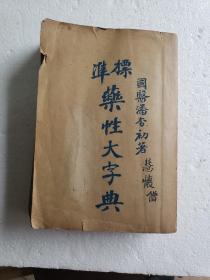 標準
藥性大字典
國醫潘杏初著